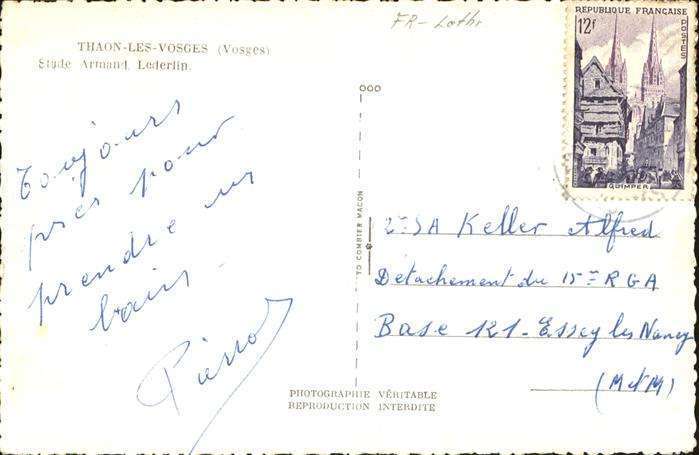 FR-Loth
RÉPUBLIQUE FRANÇAISE
12f
POSTES
QUIMPER
THAON-LES-VOSGES (Vosges)
Stade Armand Lederlin.
Toujours
près pour
prendre un
bain
Pierrot
TO COMBIER MACON
2e SA Keller Alfred
Détachement du 15me RGA
Base 121-Essey les Nancy
(M et M)
PHOTOGRAPHIE VÉRITABLE
REPRODUCTION INTERDITE